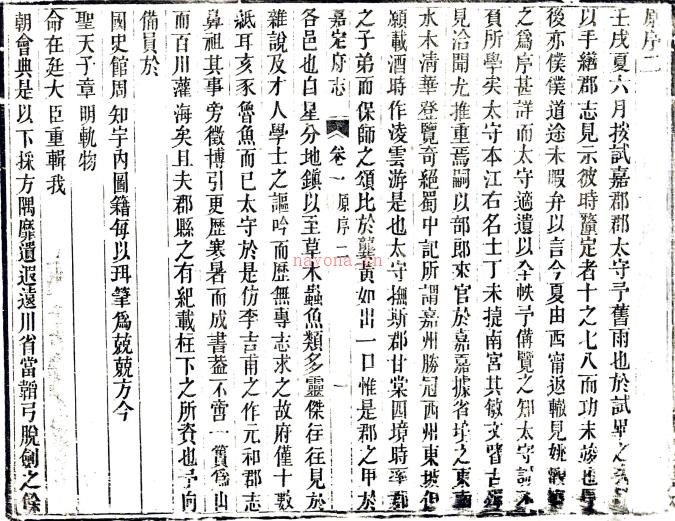 原序二
壬戌夏六月按試嘉郡郡太守予舊雨也於試畢之
以手繕郡志見示彼時釐定者十之七八而功未竣也
後亦僕僕道途未暇弁以言今夏由西甯返轍見姚
之為序甚詳而太守適遺以全帙予備覽之知太守
負所學矣太守本江右名士丁未捷南宮其敏文皆古
見洽聞尤推重焉嗣以部郎來官於嘉嘉據省垣之東南
水木清華登覽奇絕蜀中記所謂嘉州勝冠西州東坡但
願載酒時作凌雲游是也太守撫斯郡甘棠四境時率郡
之子弟而保師之頌比於龔黃如出一口惟是郡之甲於
嘉定府志 卷一 原序二 一
各邑也白星分地鎮以至草木蟲魚類多靈傑往往見於
雜說及才人學士之謳吟而歷無專志求之故府僅十數
紙耳亥豕魯魚而已太守於是仿李吉甫之作元和郡志
鼻祖其事旁徵博引更歷寒暑而成書蓋不啻一簣為山
而百川灌海矣且夫郡縣之有紀載柱下之所資也予向
備員於
國史館周知宇內圖籍每以珥筆為兢兢方今
聖天子章明軌物
命在廷大臣重輯我
朝會典是以下採方隅靡遺遐遠川省當韜弓脫劍之餘
nayona.cn